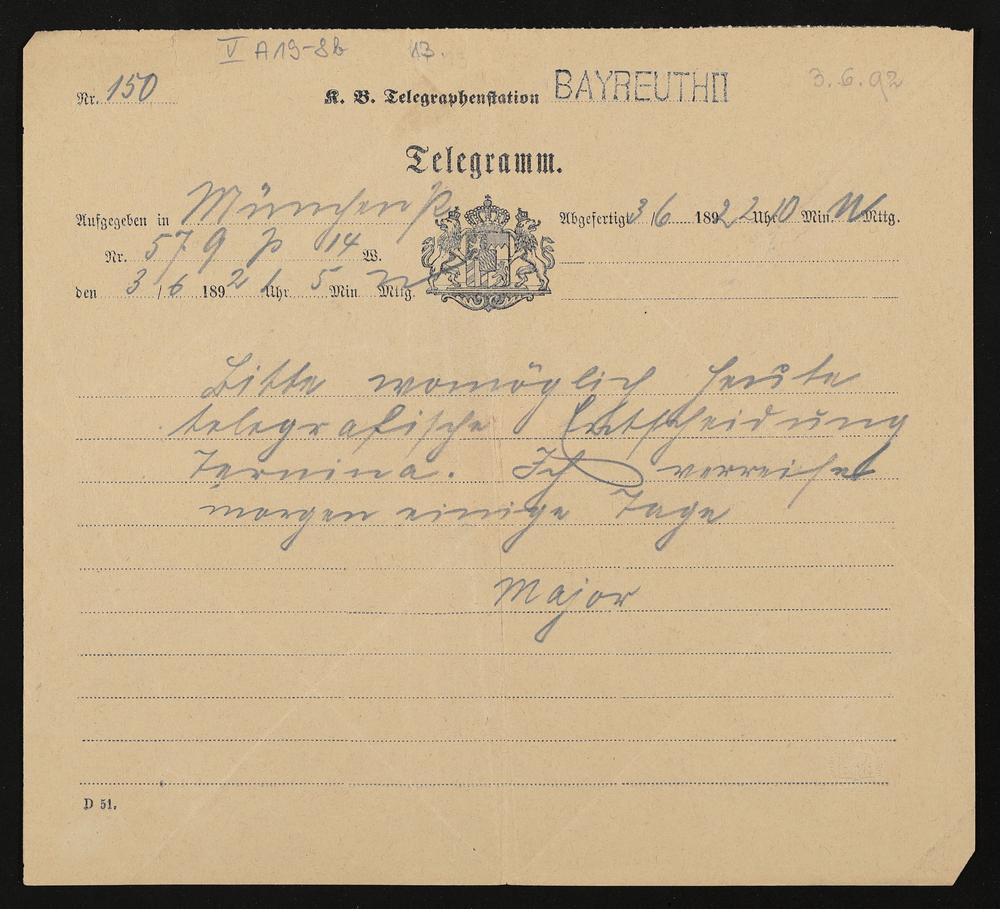 V A19-8b 13.
Nr. 150 K. B. Telegraphenstation BAYREUTH II 3.6.92
Telegramm.
Aufgegeben in München Abgefertigt 3/6 1892 2 Uhr 10 Min N Mttg.
Nr. 579 p 14 W.
den 3/6 1892 1 Uhr 5 Min N Mttg.
Bitte womöglich heute
telegrafische Entscheidung
Ternina. Ich verreise
morgen einige Tage
Major
D 51.